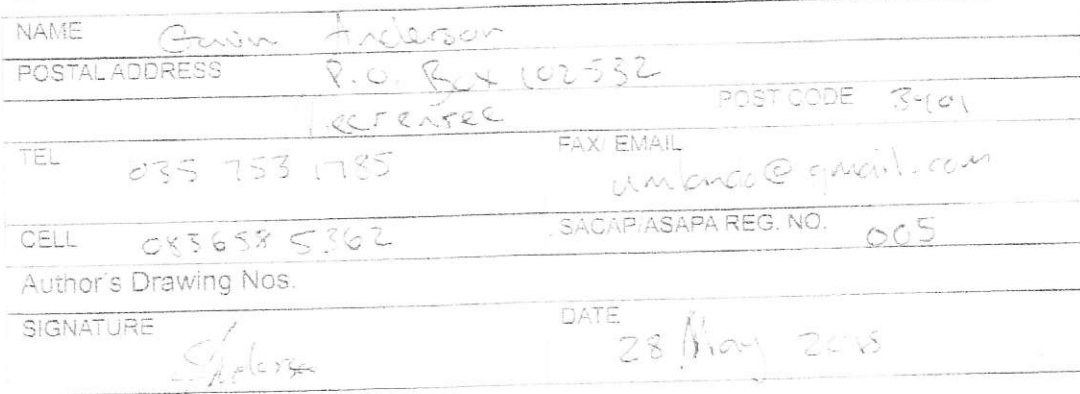 NAME Gavin Anderson
POSTAL ADDRESS P.O. Box 102532
POST CODE
TEL 035 753 1785
FAX/ EMAIL umlando@gmail.com
CELL 083 658 5362
SACAP/ASAPA REG. NO. 005
Author's Drawing Nos.
SIGNATURE
DATE 28 May